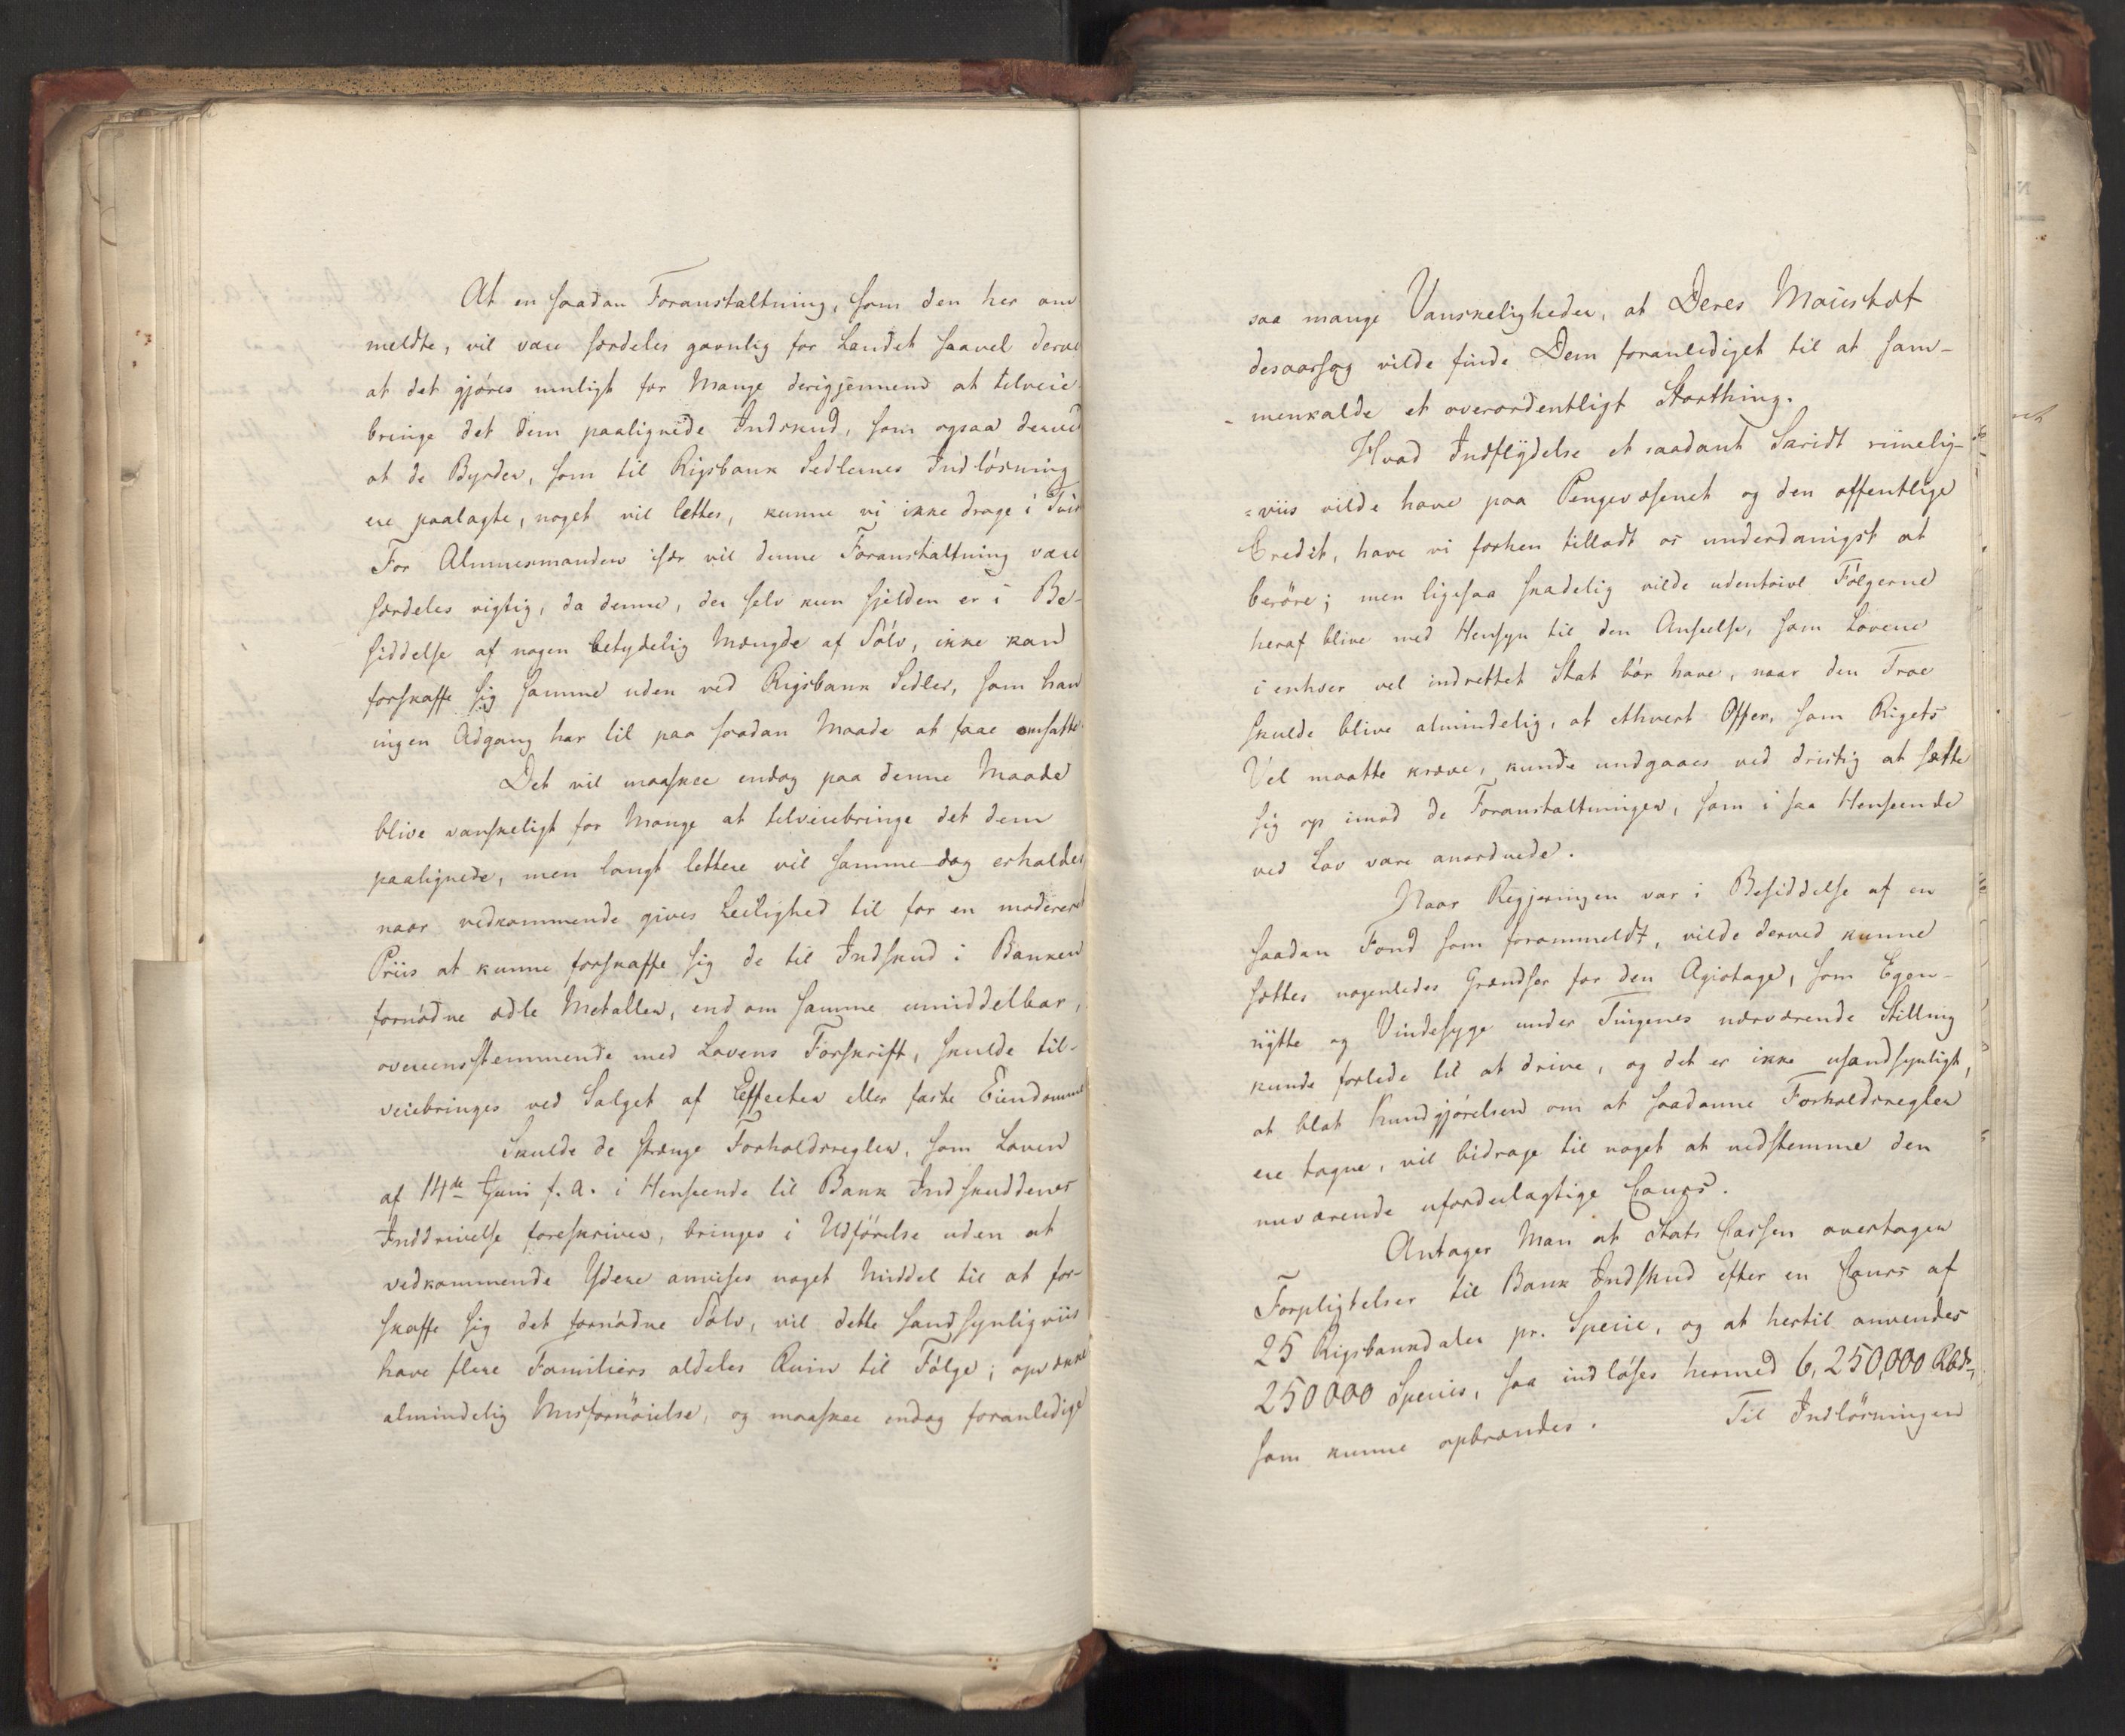 At en saadan Foranstaltning, som den her om
meldte, vil være særdeles gavnlig for Landet saavel derve
at det gjöres muligt for Mange derigjennem at tilveie
bringe det dem paalignede Indskud, som ogsaa derved
at de Byrder, som til Rigsbank Sedlernes Indlösning
ere paalagte, noget vil lettes, kunne vi ikke drage i Tvivl
For Almuesmanden især vil denne Foranstaltning være
særdeles vigtig, da denne, der selv kun sjelden er i Be-
siddelse af nogen betydelig Mængde af Sölv, ikke kan
forskaffe sig samme uden ved Rigsbank Sedler, som han
ingen Adgang har til paa saadan Maade at faae omsatte.
Det vil maaskee endog paa denne Maade
blive vanskeligt for Mange at tilveiebringe det dem
paalignede, men langt lettere vil samme dog erholdes
naar vedkommende gives Leilighed til for en modereret
Priis at kunne forskaffe sig de til Indskud i Banken
fornödne ædle Metaller, end om samme umiddelbar,
overeensstemmende med Lovens Forskrift, skulde til-
veiebringes ved Salget af Effecter eller faste Eiendomme
Skulde de strænge Forholdsregler, som Loven
af 14de Juni f. a. i Henseende til Bank Indskuddenes
Inddrivelse foreskriver, bringes i Udförelse uden at
vedkommende Ydere anvises noget Middel til at for-
skaffe sig det fornödne Sölv, vil dette sandsynligviis
have flere Familiers aldeles Ruin til Fölge; opvække
almindelig Misfornöielse, og maaskee endog foranledige
saa mange Vanskeligheder, at Deres Maiestæt
desaarsag vilde finde Dem foranlediget til at sam-
menkalde et overordentligt Storthing.
Hvad Indflydelse et saadant Skridt rimelig-
=viis vilde have paa Pengevæsenet og den offentlige
Credit, have vi forhen tilladt os underdanigst at
beröre; men ligesaa skadelig vilde udentvivl Fölgerne
heraf blive med Hensyn til den Anseelse, som Lovene
i enhver vel indrettet Stat bör have, naar den Troe
skulde blive almindelig, at ethvert Offer, som Rigets
Vel maatte kræve, kunde undgaaes ved dristig at sætte
sig op imod de Foranstaltninger, som i saa Henseende
ved Lov vare anordnede.
Naar Regjeringen var i Besiddelse af en
saadan Fond som forommeldt, vilde derved kunne
sættes nogenledes Grændser for den Agiotage, som Egen-
nytte og Vindesyge under Tingenes nærværende Stilling
kunde forlede til at drive, og det er ikke usandsynligt,
at blot Kundgjörelsen om at saadanne Forholdsregler
ere tagne, vil bidrage til noget at nedstemme den
nuværende ufordeelagtige Cours.
Antager Man at Stats Cassen overtager
Forpligtelser til Bank Indskud efter en Cours af
25 Rigsbankdaler pr. Specie, og at hertil anvendes
250000 Species, saa indlöses hermed 6,250,000 Rbd,
som kunne opbrændes. Til Indlösningen